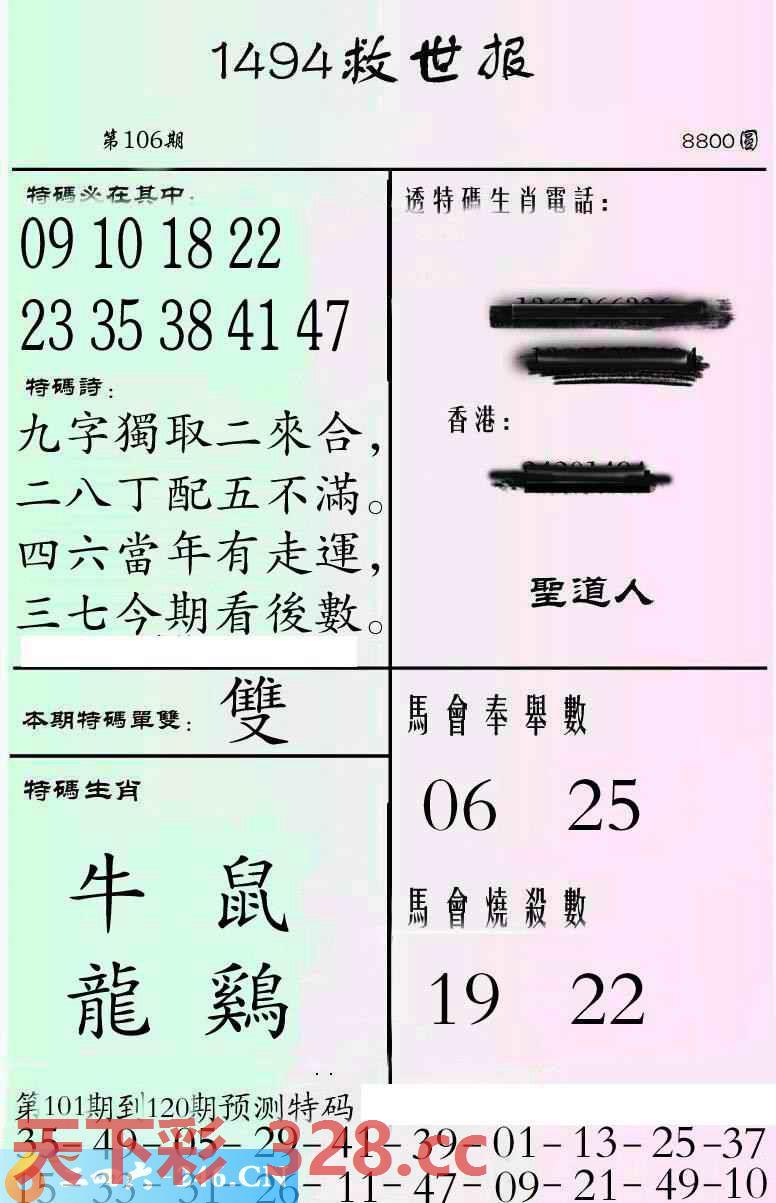 1494救世报
第106期
8800圓
特碼必在其中:
09 10 18 22
23 35 38 41 47
特碼詩:
九字獨取二來合,
二八丁配五不滿。
四六當年有走運,
三七今期看後數。
本期特碼單雙:雙
特碼生肖
牛 鼠
龍 鷄
透特碼生肖電話:
香港:
聖道人
馬會奉舉數
06 25
馬會燒殺數
19 22
第101期到120期预测特码
35-49-05-29-41-39-01-13-25-37
15-33-31-26-11-47-09-21-49-10
天下彩 328.cc
二四六 246.CN